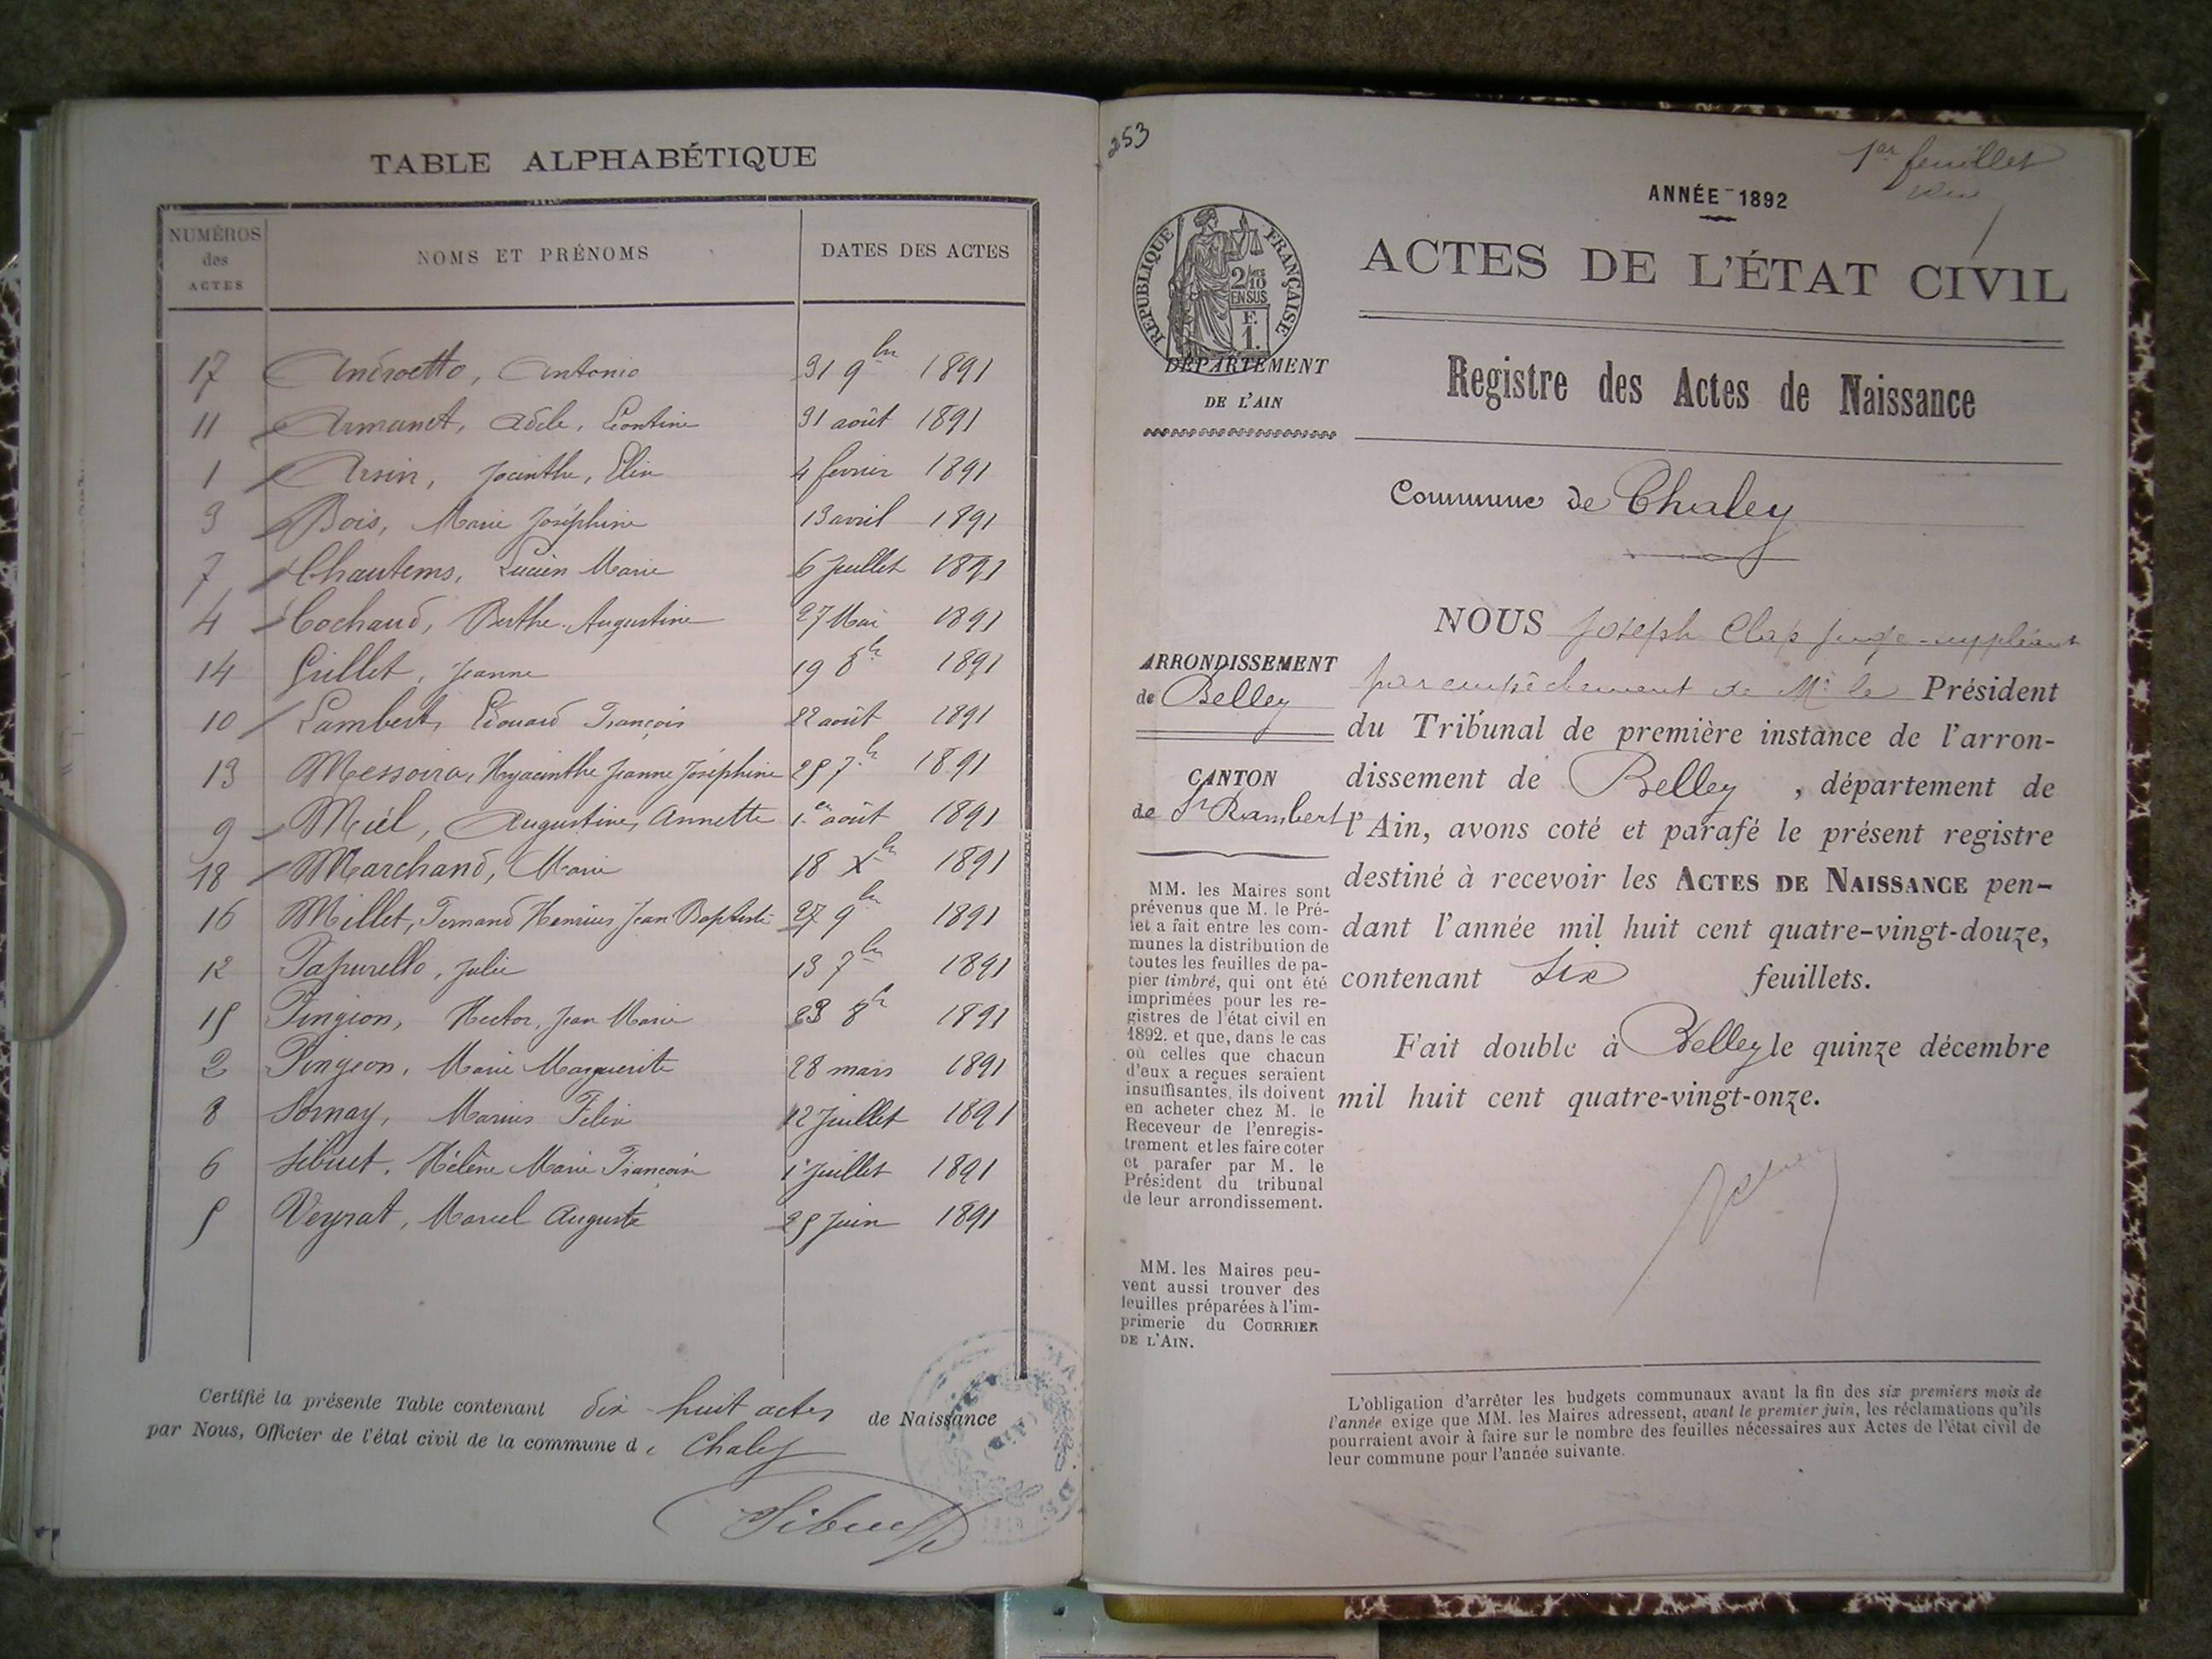 TABLE ALPHABÉTIQUE
NUMÉROS des ACTES NOMS ET PRÉNOMS DATES DES ACTES
17 Andreetto, Antonio 31 9bre 1891
11 Armanet, Adèle, Léontine 31 août 1891
1 Arsin, Jacinthe, Elie 4 février 1891
3 Bois, Marie Joséphine 13 avril 1891
7 Chautems, Lucien Marie 6 Juillet 1891
4 Cochaud, Berthe Augustine 27 Mai 1891
14 Grillet, Jeanne 19 8b 1891
10 Lambert, Edouard François 22 août 1891
13 Messoira, Hyacinthe Jeanne Joséphine 25 7b 1891
9 Miel, Augustine, Annette 1er août 1891
18 Marchand, Marie 18 Xbre 1891
16 Millet, Fernand Henrius Jean Baptiste 27 9bre 1891
12 Papurello, Julie 13 7bre 1891
15 Pingeon, Hector, Jean Marie 23 8b 1891
2 Pingeon, Marie Marguerite 28 mars 1891
8 Sornay, Marius Félix 12 Juillet 1891
6 Sibuet, Hélène Marie 1r Juillet 1891
5 Veyrat, Marcel Auguste 25 Juin 1891
Certifié la présente Table contenant dix-huit actes de Naissance
par Nous, Officier de l'état civil de la commune de Chaley
Sibuet
253
1er feuillet
ANNÉE 1892
ACTES DE L'ÉTAT CIVIL
RÉPUBLIQUE FRANÇAISE
2/10
EN SUS
F.
1.
DÉPARTEMENT
DE L'AIN
Registre des Actes de Naissance
Commune de Chaley
ARRONDISSEMENT
de Belley
CANTON
de St Rambert
MM. les Maires sont
prévenus que M. le Pré-
fet a fait entre les com-
munes la distribution de
toutes les feuilles de pa-
pier timbré, qui ont été
imprimées pour les re-
gistres de l'état civil en
1892. et que, dans le cas
où celles que chacun
d'eux a reçues seraient
insuffisantes, ils doivent
en acheter chez M. le
Receveur de l'enregis-
trement et les faire coter
et parafer par M. le
Président du tribunal
de leur arrondissement.
MM. les Maires peu-
vent aussi trouver des
feuilles préparées à l'im-
primerie du COURRIER
DE L'AIN.
NOUS Joseph Clap juge-suppléant
par empêchement de Mr le Président
du Tribunal de première instance de l'arron-
dissement de Belley, département de
l'Ain, avons coté et parafé le présent registre
destiné à recevoir les ACTES DE NAISSANCE pen-
dant l'année mil huit cent quatre-vingt-douze,
contenant six feuillets.
Fait double à Belley le quinze décembre
mil huit cent quatre-vingt-onze.
L'obligation d'arrêter les budgets communaux avant la fin des six premiers mois de
l'année exige que MM. les Maires adressent, avant le premier juin, les réclamations qu'ils
pourraient avoir à faire sur le nombre des feuilles nécessaires aux Actes de l'état civil de
leur commune pour l'année suivante.